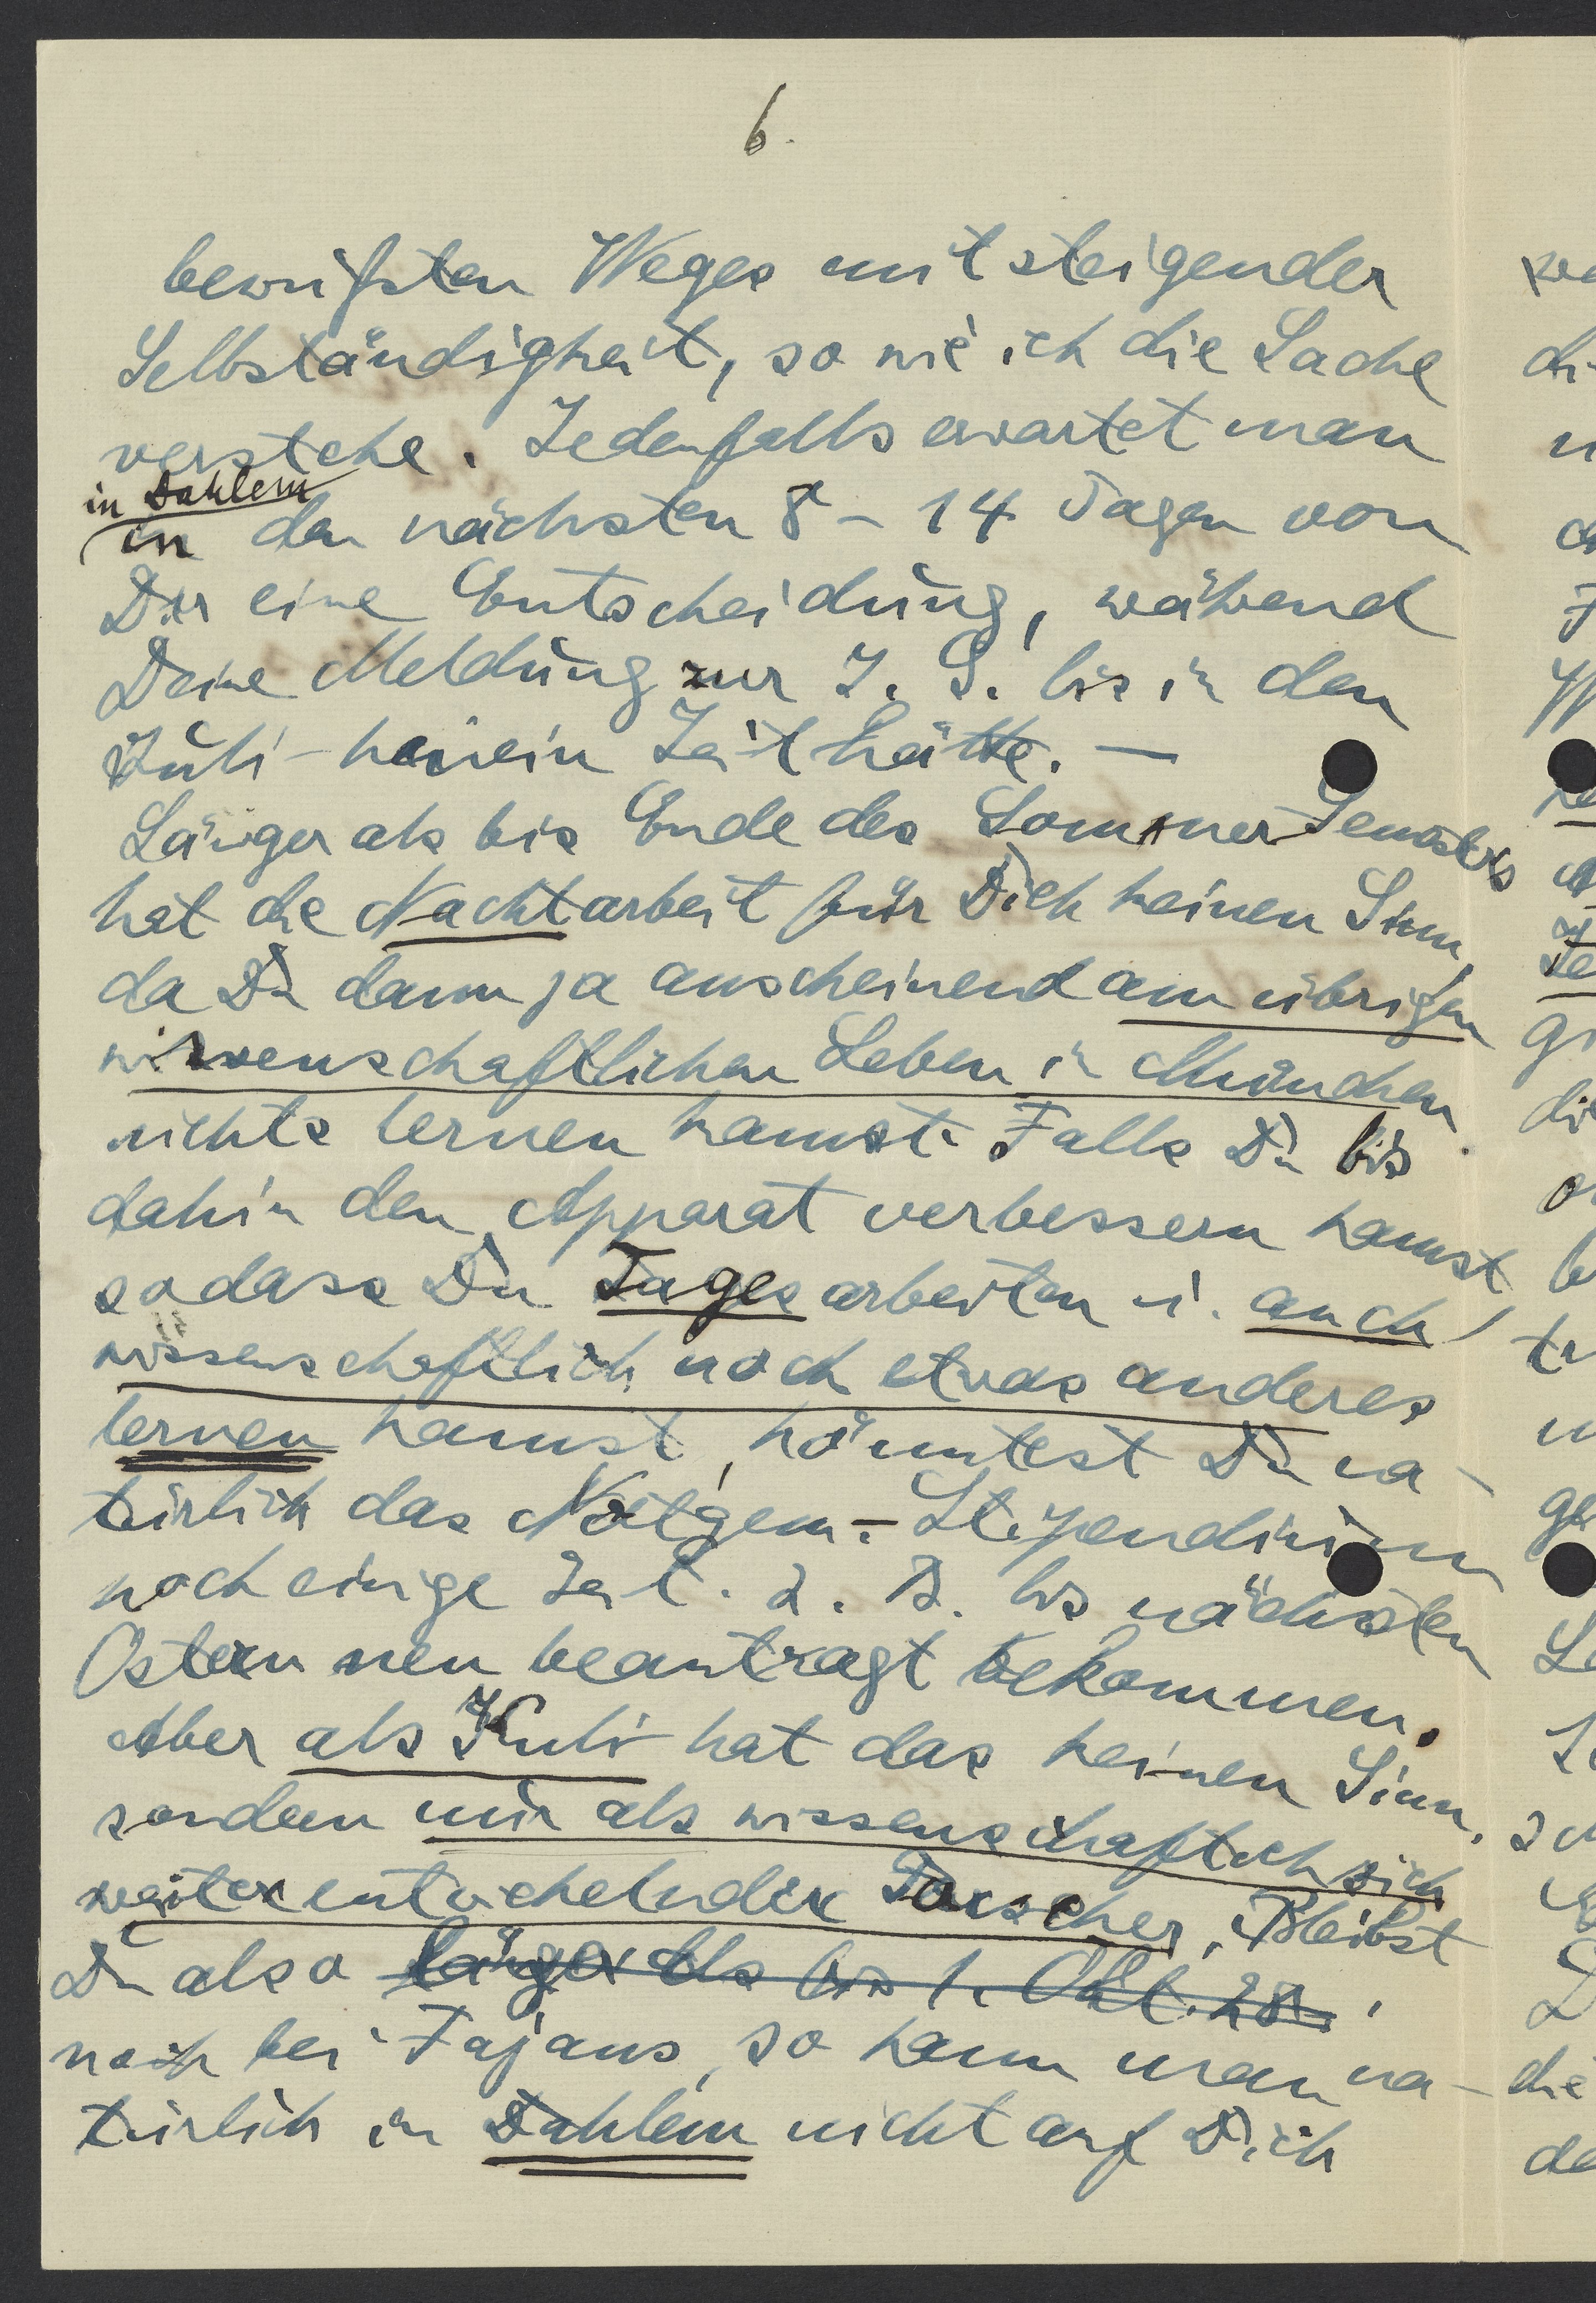 6.
bewußten Weges mit steigender
Selbständigkeit, so wie ich die Sache
verstehe. Jedenfalls erwartet man
in Dahlem
in den nächsten 8 - 14 Tagen von
Dir eine Entscheidung, während
Deine Meldung zur I. G. bis in den
Juli hinein Zeit hätte. —
Länger als bis Ende des Sommer Semesters
hat die Nachtarbeit für Dich keinen Sinn,
da Du dann ja anscheinend am übrigen
wissenschaftlichen Leben in München
nichts lernen kannst. Falls Du bis
dahin den Apparat verbessern kannst
sodass Du Tages arbeiten u. auch
wissenschaftlich noch etwas anderes
lernen kannst, könntest Du na-
türlich das Notgem.-Stipendium
noch einige Zeit z. B. bis nächsten
Ostern neu beantragt bekommen.
Aber als Kuli hat das keinen Sinn,
sondern nur als wissenschaftlich sich
weiter entwickelnder Forscher. Bleibst
Du also länger als bis 1. Okt. 28.
noch bei Fajans, so kann man na-
türlich in Dahlem nicht auf Dich